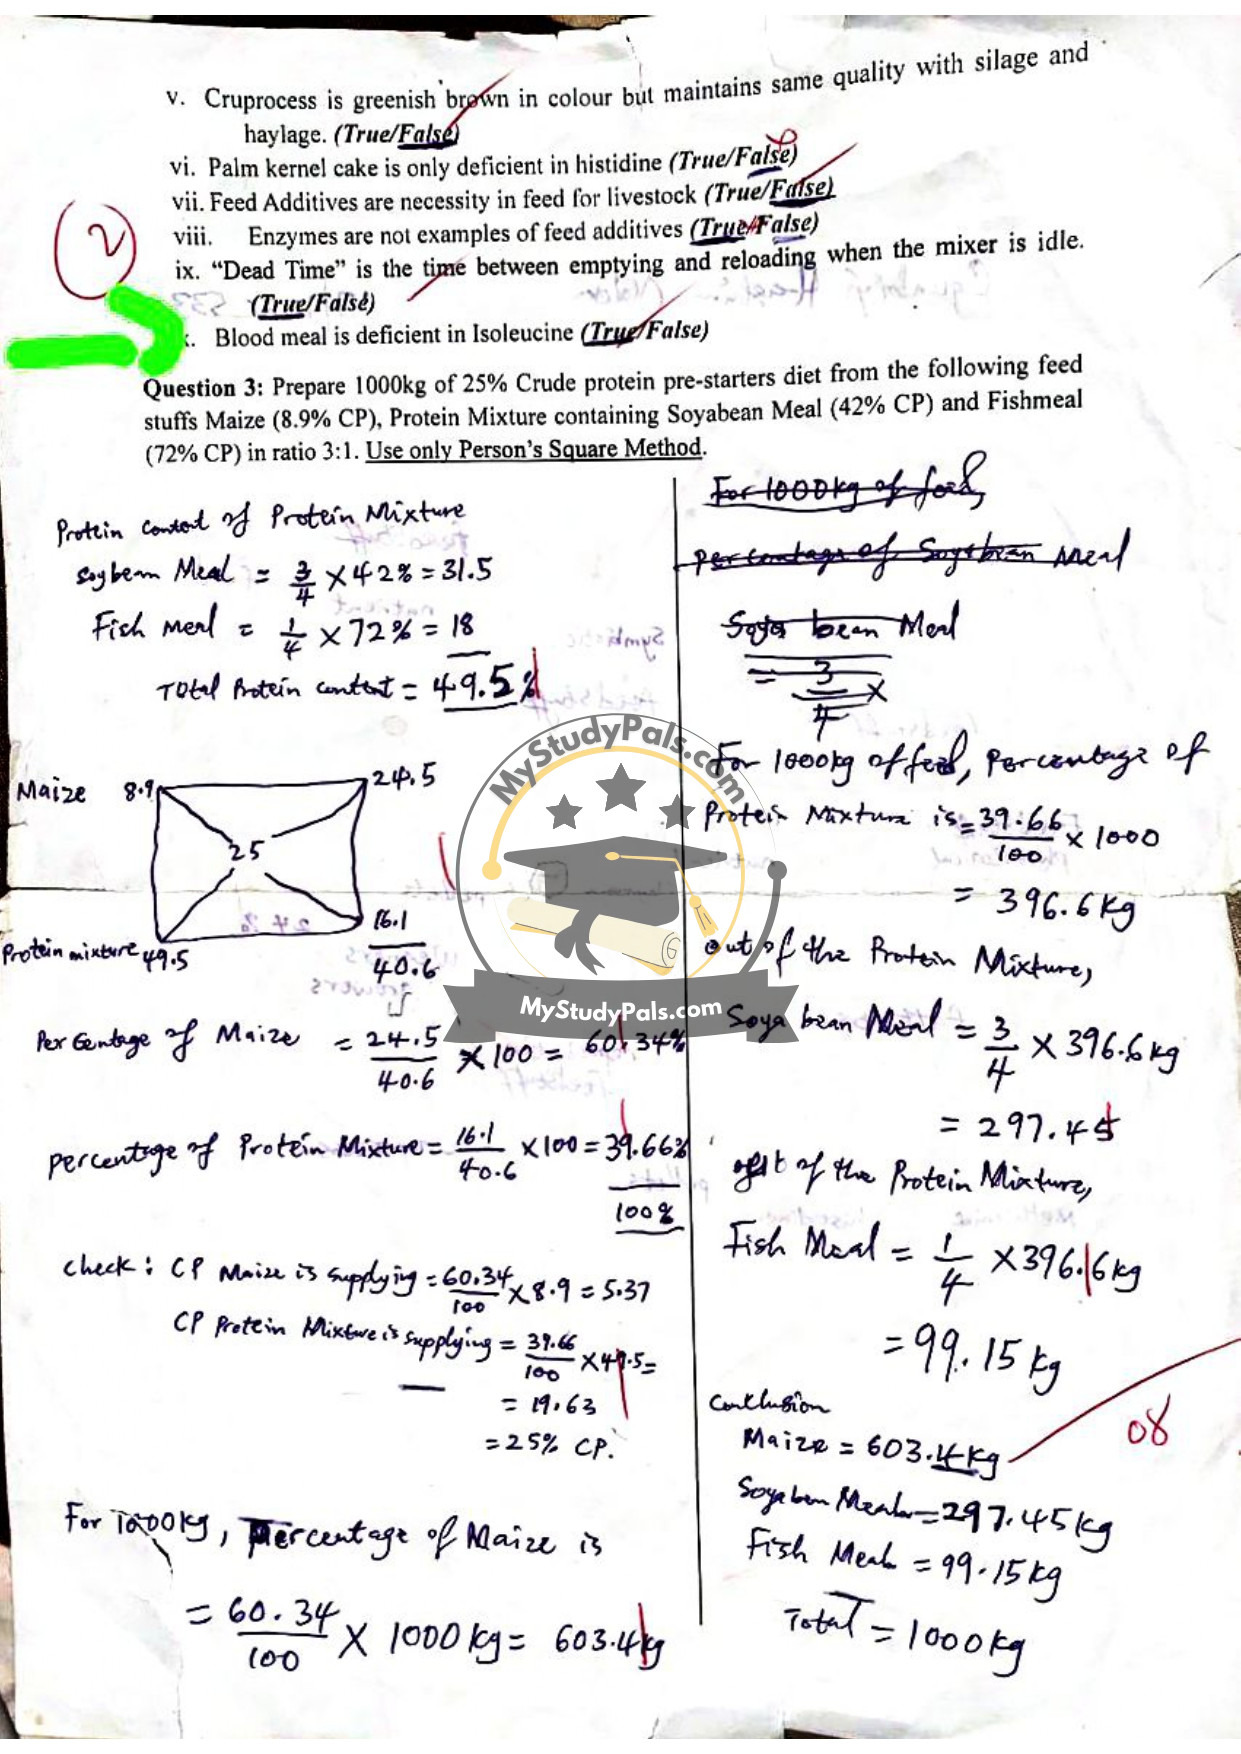 v. Cruprocess is greenish brown in colour but maintains same quality with silage and
haylage. (True/False)
vi. Palm kernel cake is only deficient in histidine (True/False)
vii. Feed Additives are necessity in feed for livestock (True/False)
viii. Enzymes are not examples of feed additives (True/False)
2
ix. "Dead Time" is the time between emptying and reloading when the mixer is idle.
(True/False)
Blood meal is deficient in Isoleucine (True/False)
Question 3: Prepare 1000kg of 25% Crude protein pre-starters diet from the following feed
stuffs Maize (8.9% CP), Protein Mixture containing Soyabean Meal (42% CP) and Fishmeal
(72% CP) in ratio 3:1. Use only Person's Square Method.
Protein Content of Protein Mixture
Soybean Meal = 3/4 × 42% = 31.5
Fish meal = 1/4 × 72% = 18
Total Protein content = 49.5%
Maize 8.9 24.5
25
Protein mixture 49.5 16.1
40.6
Percentage of Maize = 24.5/40.6 × 100 = 60.34%
percentage of Protein Mixture = 16.1/40.6 × 100 = 39.66%
100%
check: CP Maize is supplying = 60.34/100 × 8.9 = 5.37
CP Protein Mixture is supplying = 39.66/100 × 49.5 =
= 19.63
= 25% CP.
For 1000kg, Percentage of Maize is
= 60.34/100 × 1000kg = 603.4kg
For 1000kg of feed,
percentage of Soyabean Meal
Soya bean Meal
= 3/4 ×
For 1000kg of feed, percentage of
Protein Mixture is = 39.66/100 × 1000
= 396.6kg
out of the Protein Mixture,
Soya bean Meal = 3/4 × 396.6kg
= 297.45
out of the Protein Mixture,
Fish Meal = 1/4 × 396.6kg
= 99.15kg
Conclusion
Maize = 603.4kg
08
Soyabean Meal = 297.45kg
Fish Meal = 99.15kg
Total = 1000kg
MyStudyPals.com
MyStudyPals.com